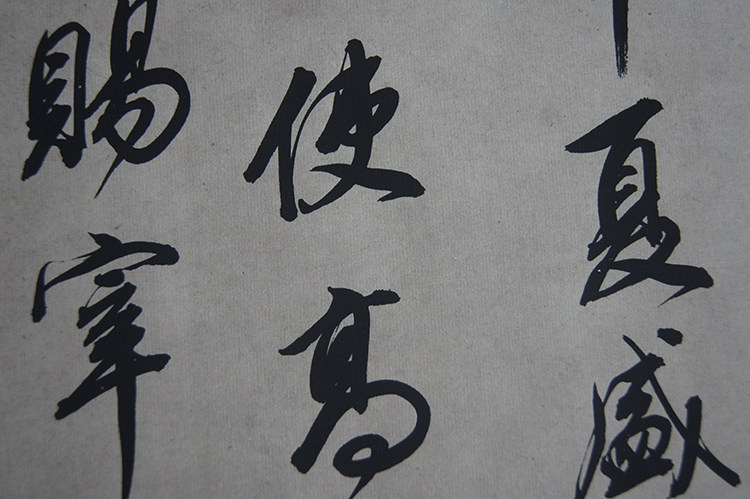 夏盛
使高
賜宰